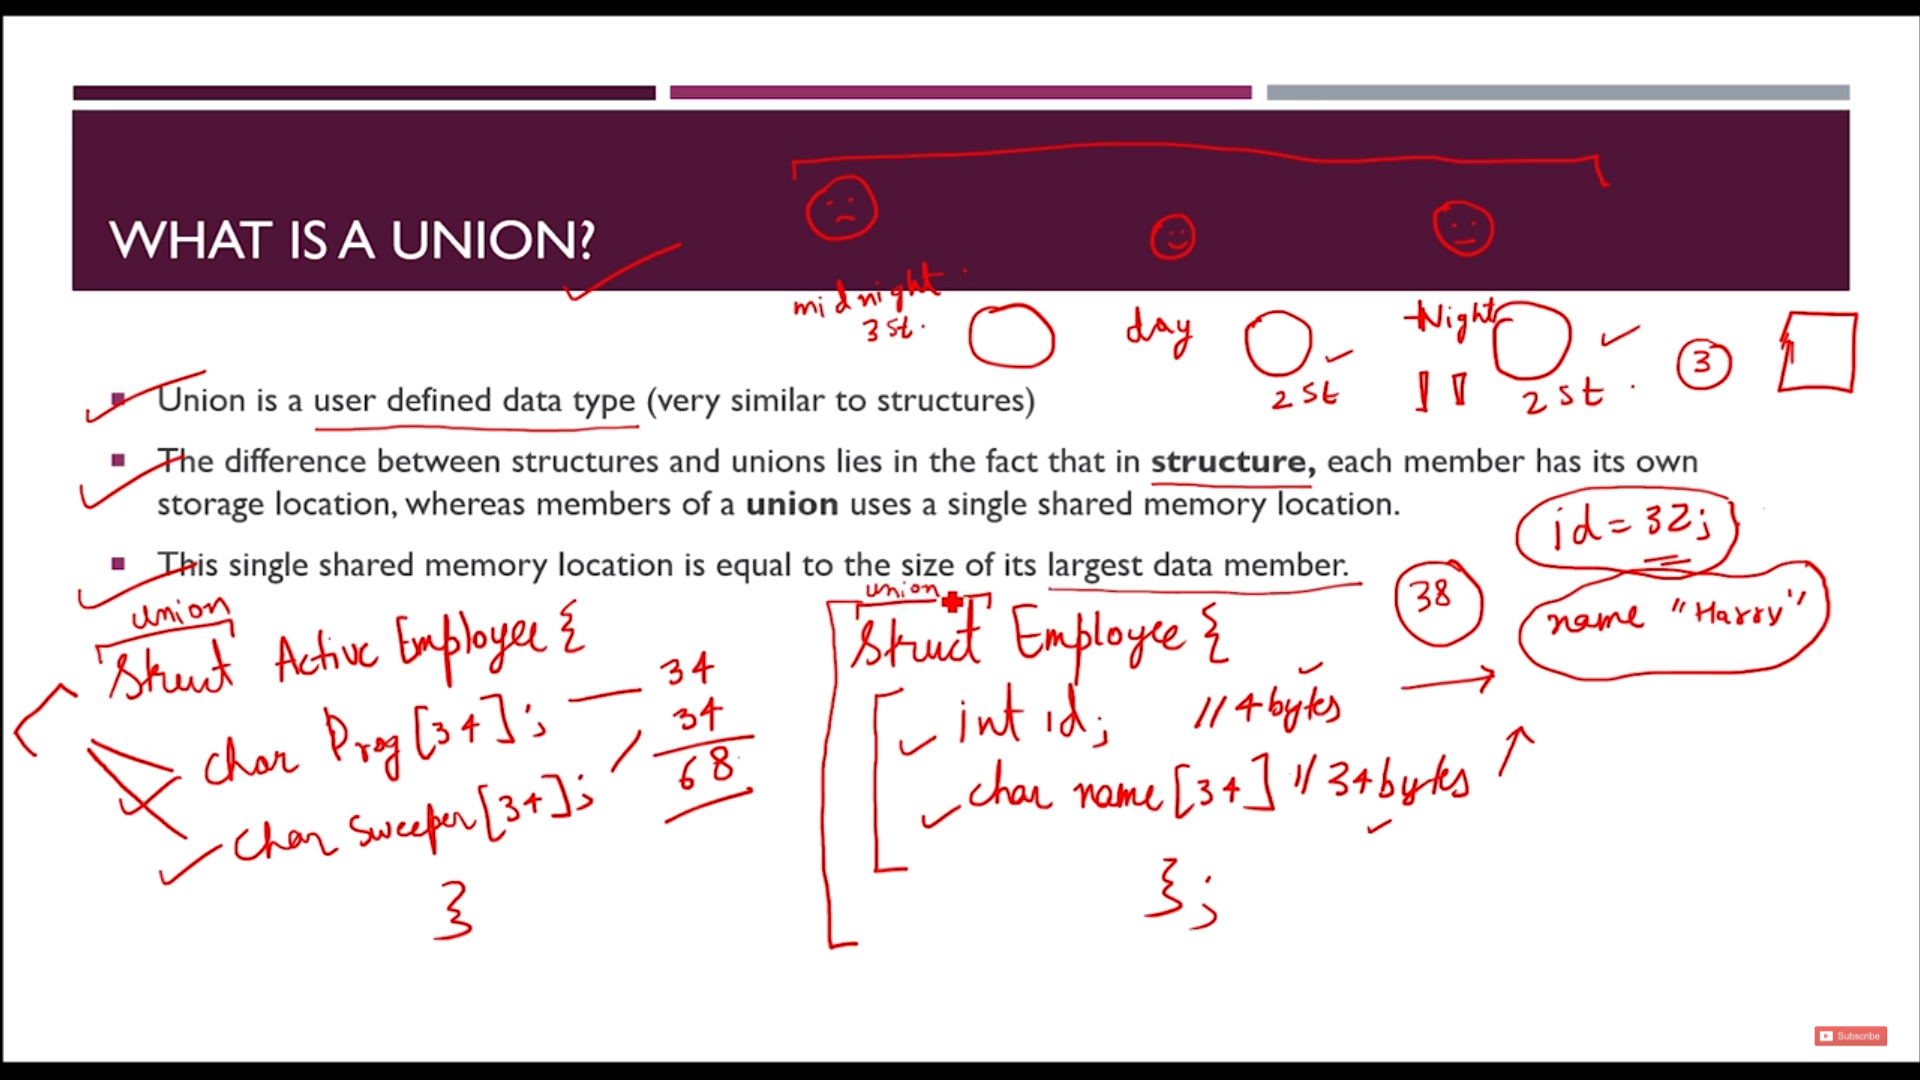 WHAT IS A UNION?
midnight
3 st.
day
2 st
Night
2 st
3
Union is a user defined data type (very similar to structures)
The difference between structures and unions lies in the fact that in structure, each member has its own
storage location, whereas members of a union uses a single shared memory location.
This single shared memory location is equal to the size of its largest data member.
id = 32;
name "Harry"
38
union
Struct Active Employee {
char Prog [34];
char Sweeper [34];
}
34
34
68
union
Struct Employee {
int id; // 4 bytes
char name [34] // 34 bytes
};
Subscribe